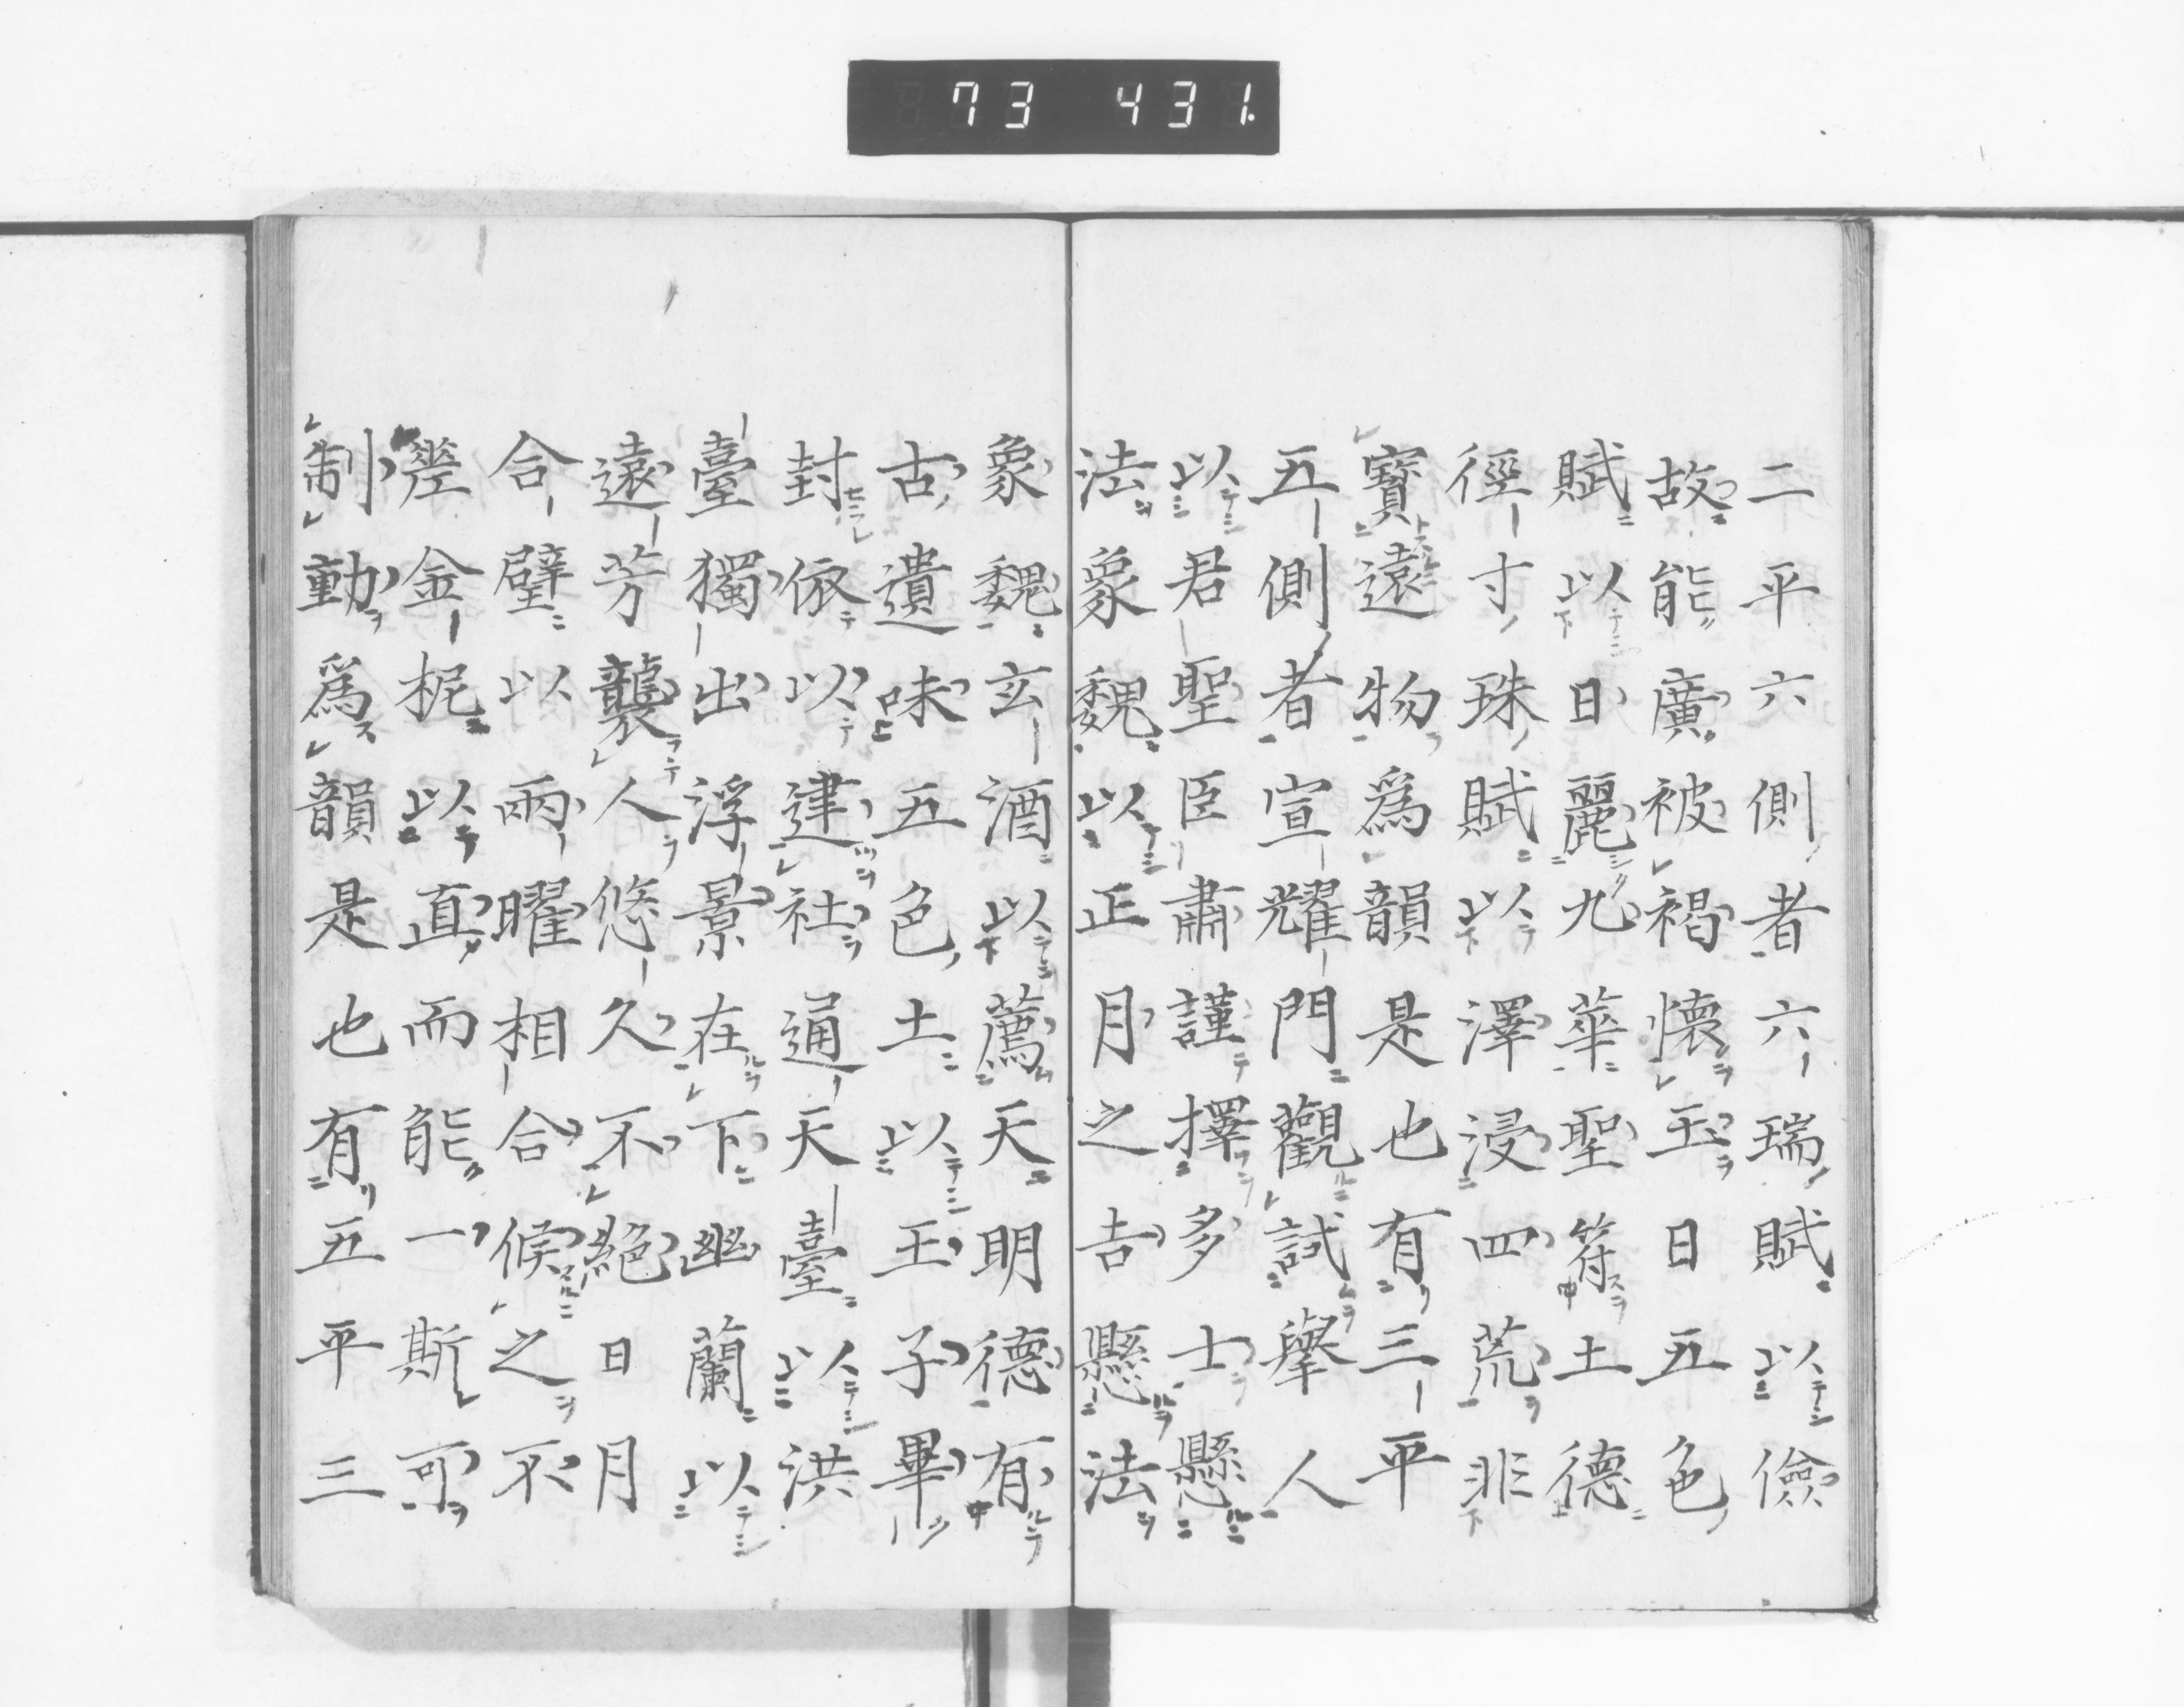 73 431
二平六側者六瑞賦以儉
故能廣被褐懷玉日五色
賦以日麗九華聖符土德
徑寸珠賦以澤浸四荒非
寶遠物爲韻是也有三平
五側者宣耀門觀試舉人
以君聖臣肅謹擇多士懸
法象魏以正月之吉懸法
象魏玄酒以薦天明德有
古遺味五色土以王子畢
封依以建社通天臺以洪
臺獨出浮景在下幽蘭以
遠芳襲人悠久不絕日月
合璧以兩曜相合候之不
差金柅以直而能一斯可
制動爲韻是也有五平三